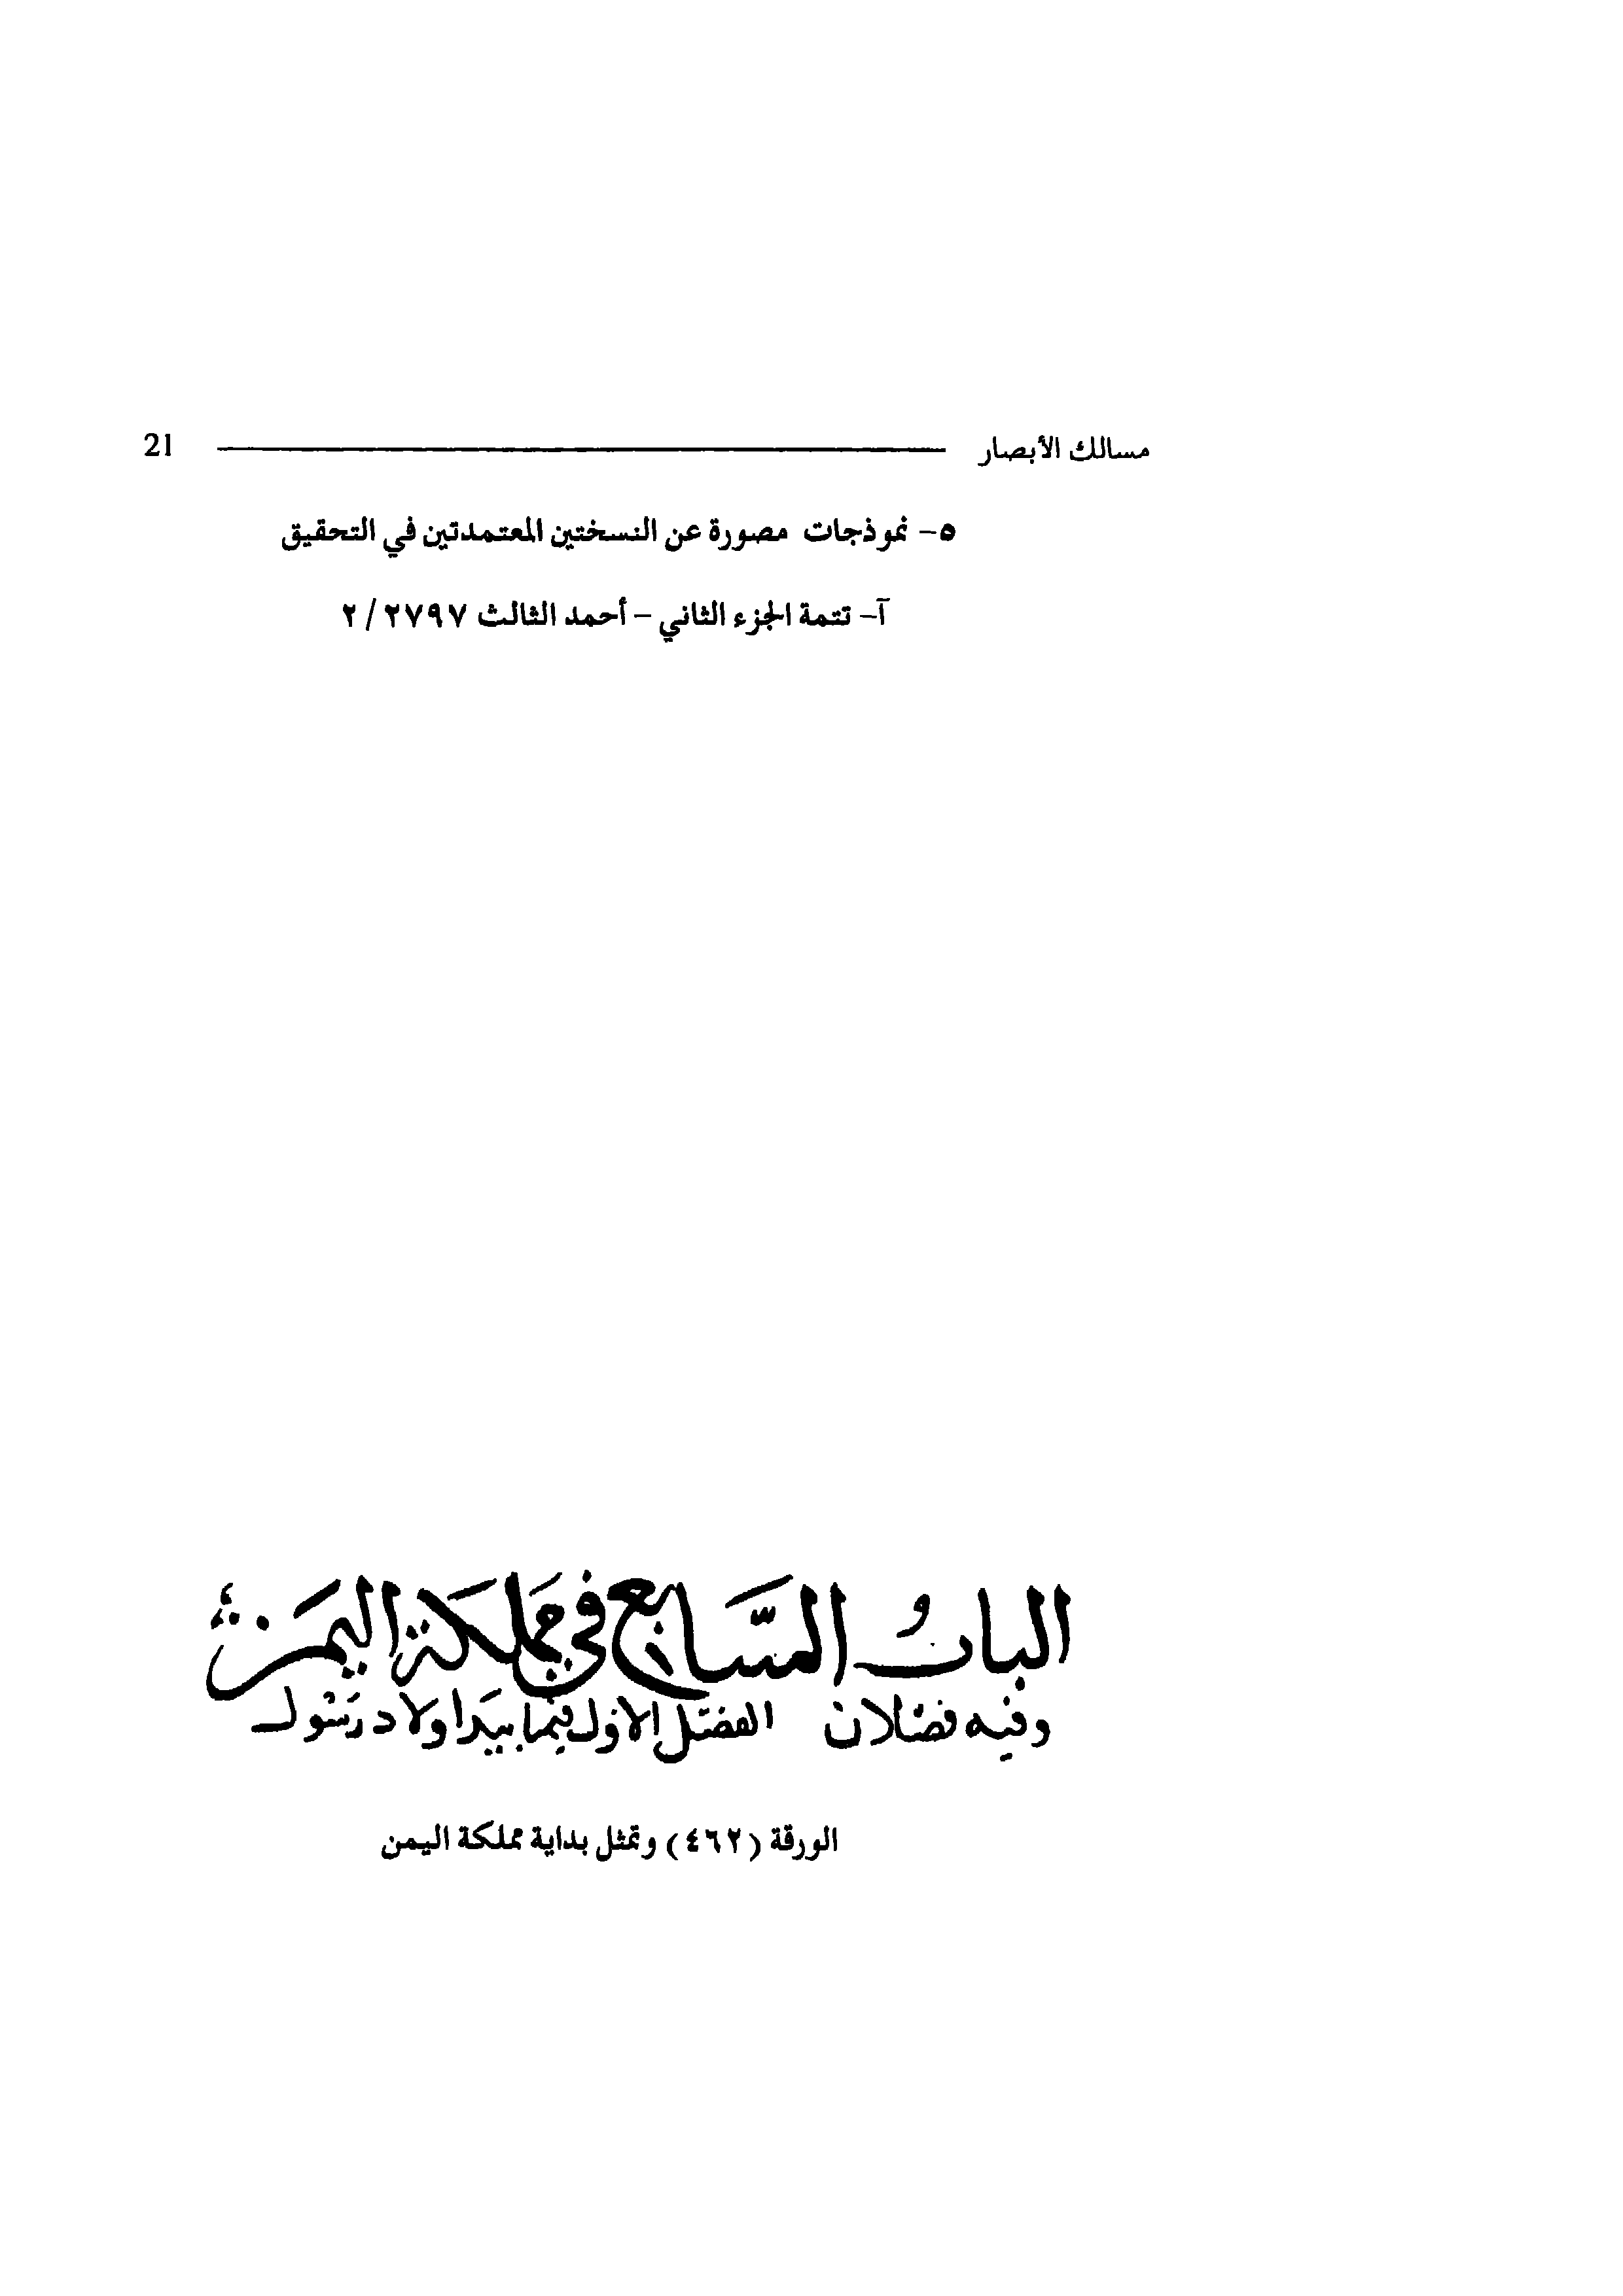 مسالك الأبصار 21
٥- نموذجات مصورة عن النسختين المعتمدتين في التحقيق
آ- تتمة الجزء الثاني - أحمد الثالث ٢٧٩٧ / ٢
الباب السابع في مملكة اليمن
وفيه فصلان الفصل الاول فيما بيد اولاد رسول
الورقة (٤٦٢) وتمثل بداية مملكة اليمن